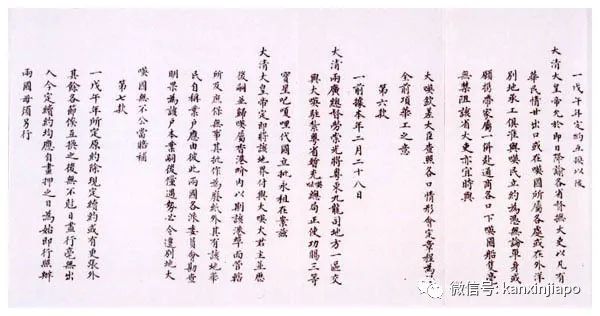 一戊午年定約互換以後
大清大皇帝允於即日降諭各省督撫大吏以凡有
華民情甘出口或在𠸄國所屬各處或在外洋
別地承工俱准與𠸄民立約為憑無論單身或
願攜帶家屬一併赴通商各口下𠸄國船隻毫
無禁阻該省大吏亦宜時與
大𠸄欽差大臣查照各口情形會定章程為
全前項華工之意
第六款
一前據本年二月二十八日
大清兩廣總督勞崇光將粵東九龍司地方一區交
與大𠸄駐紮粵省暫充總局正使功賜三等
寶星巴嗄哩代國立批永租在案茲
大清大皇帝定即將該地界付與大𠸄大君主並歷
後嗣並歸𠸄屬香港界內以期該港埠面管轄
所及庶保無事其批作為廢紙外其有該地華
民自稱業戶應由彼此兩國各派委員會勘查
明果為該戶本業嗣後倘遇勢必令遷別地大
𠸄國無不公當賠補
第七款
一戊午年所定原約除現定續約或有更張外
其餘各節俟互換之後無不尅日盡行毫無出
入今定續約均應自畫押之日為始即行照辦
兩國毋須另行
微信号: kanxinjiapo